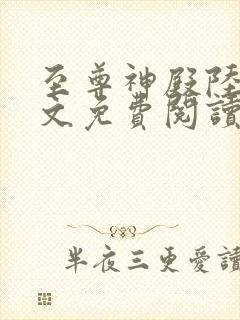 至尊神殿陸
文免費閱讀
半夜三更愛讀